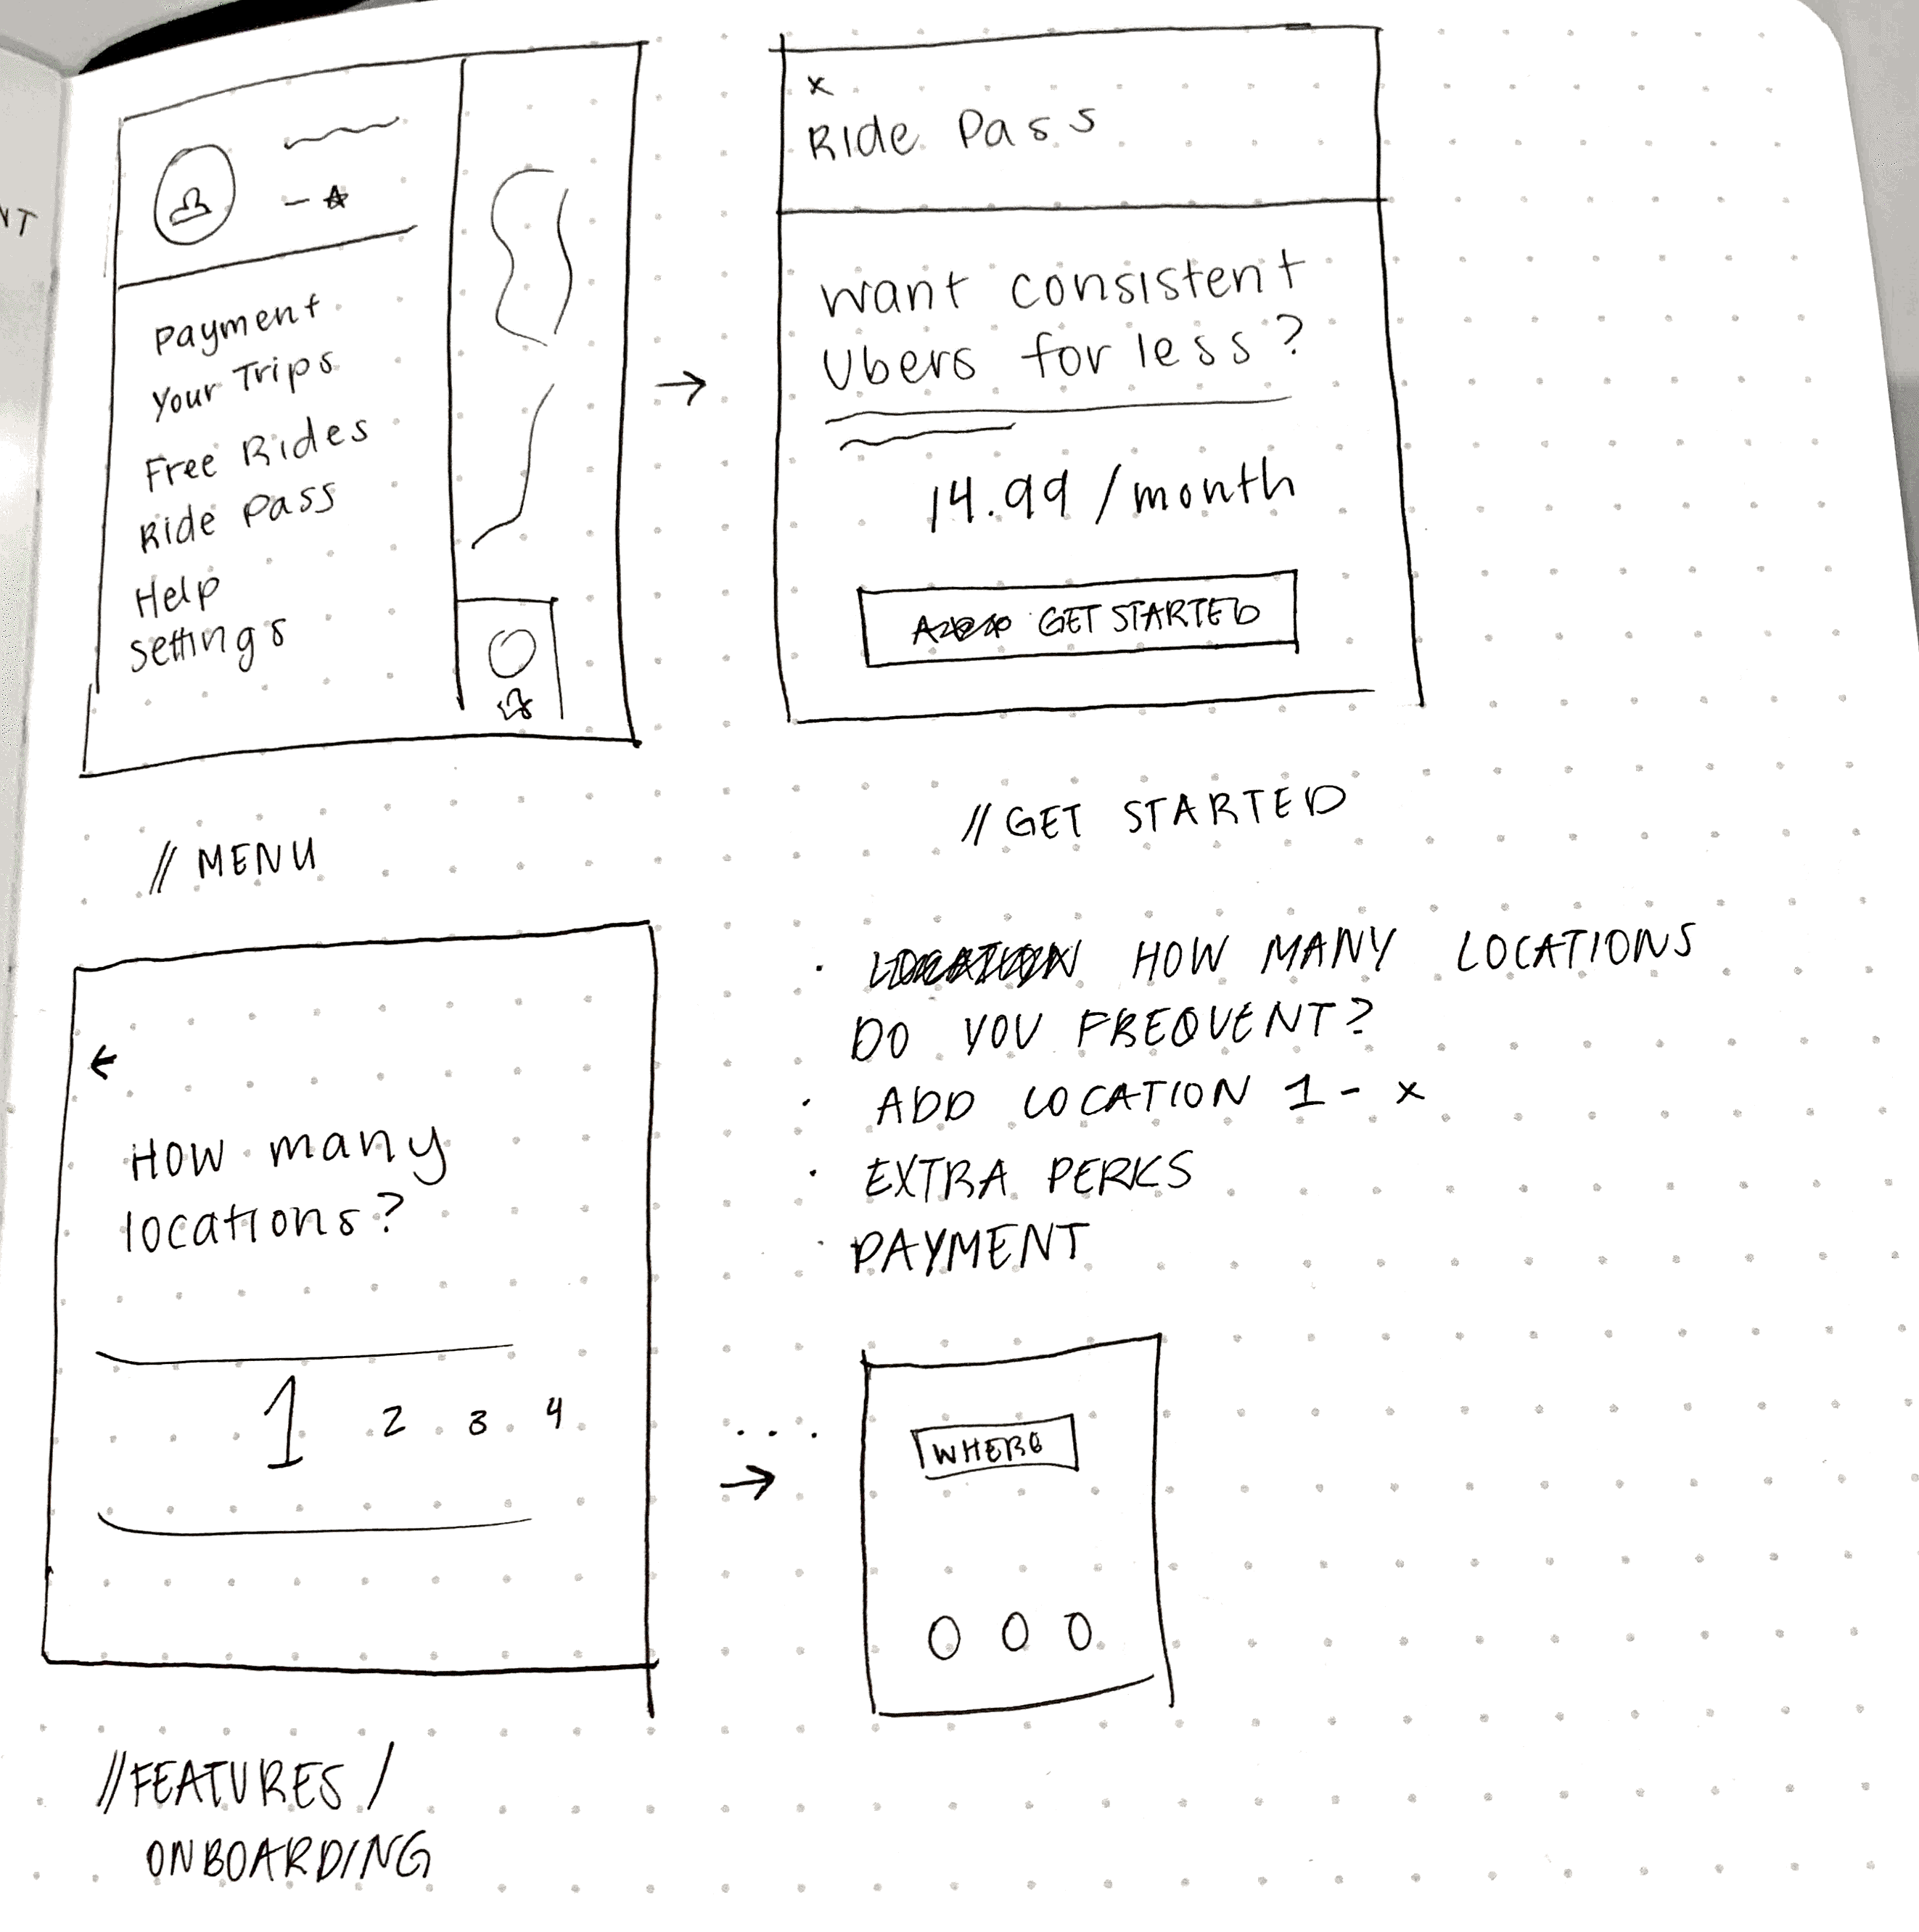 NT
Payment
Your Trips
Free Rides
Ride Pass
Help
Settings
// MENU
x
Ride Pass
Want consistent
Ubers for less?
14.99 / month
GET STARTED
// GET STARTED
←
How many
locations?
1 2 3 4
// FEATURES /
ONBOARDING
· LOCATION HOW MANY LOCATIONS
DO YOU FREQUENT?
· ADD LOCATION 1 - X
· EXTRA PERKS
· PAYMENT
...
WHERE